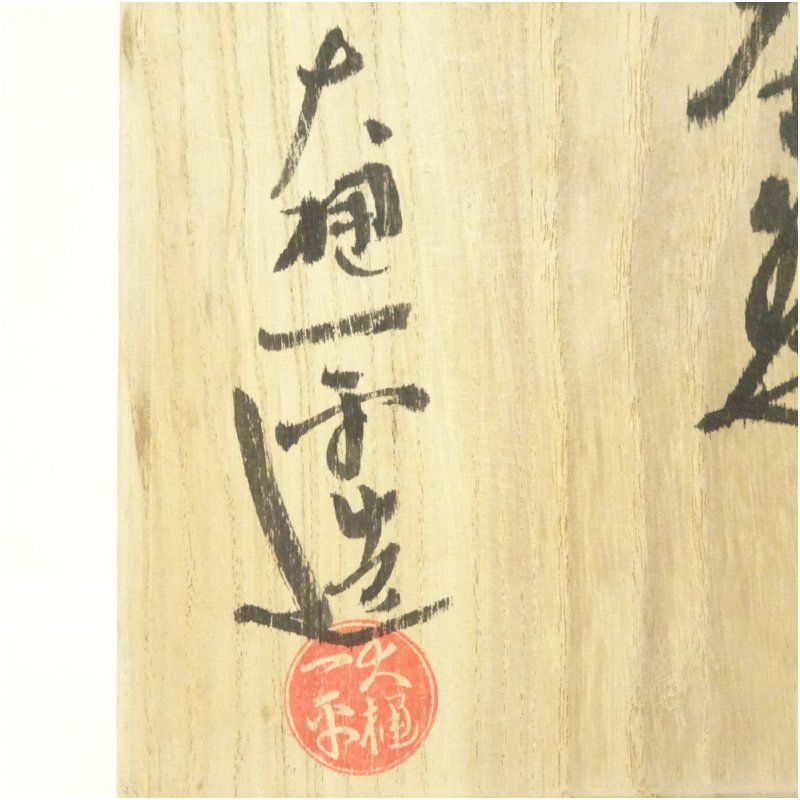 大樋一平造
大樋
一平